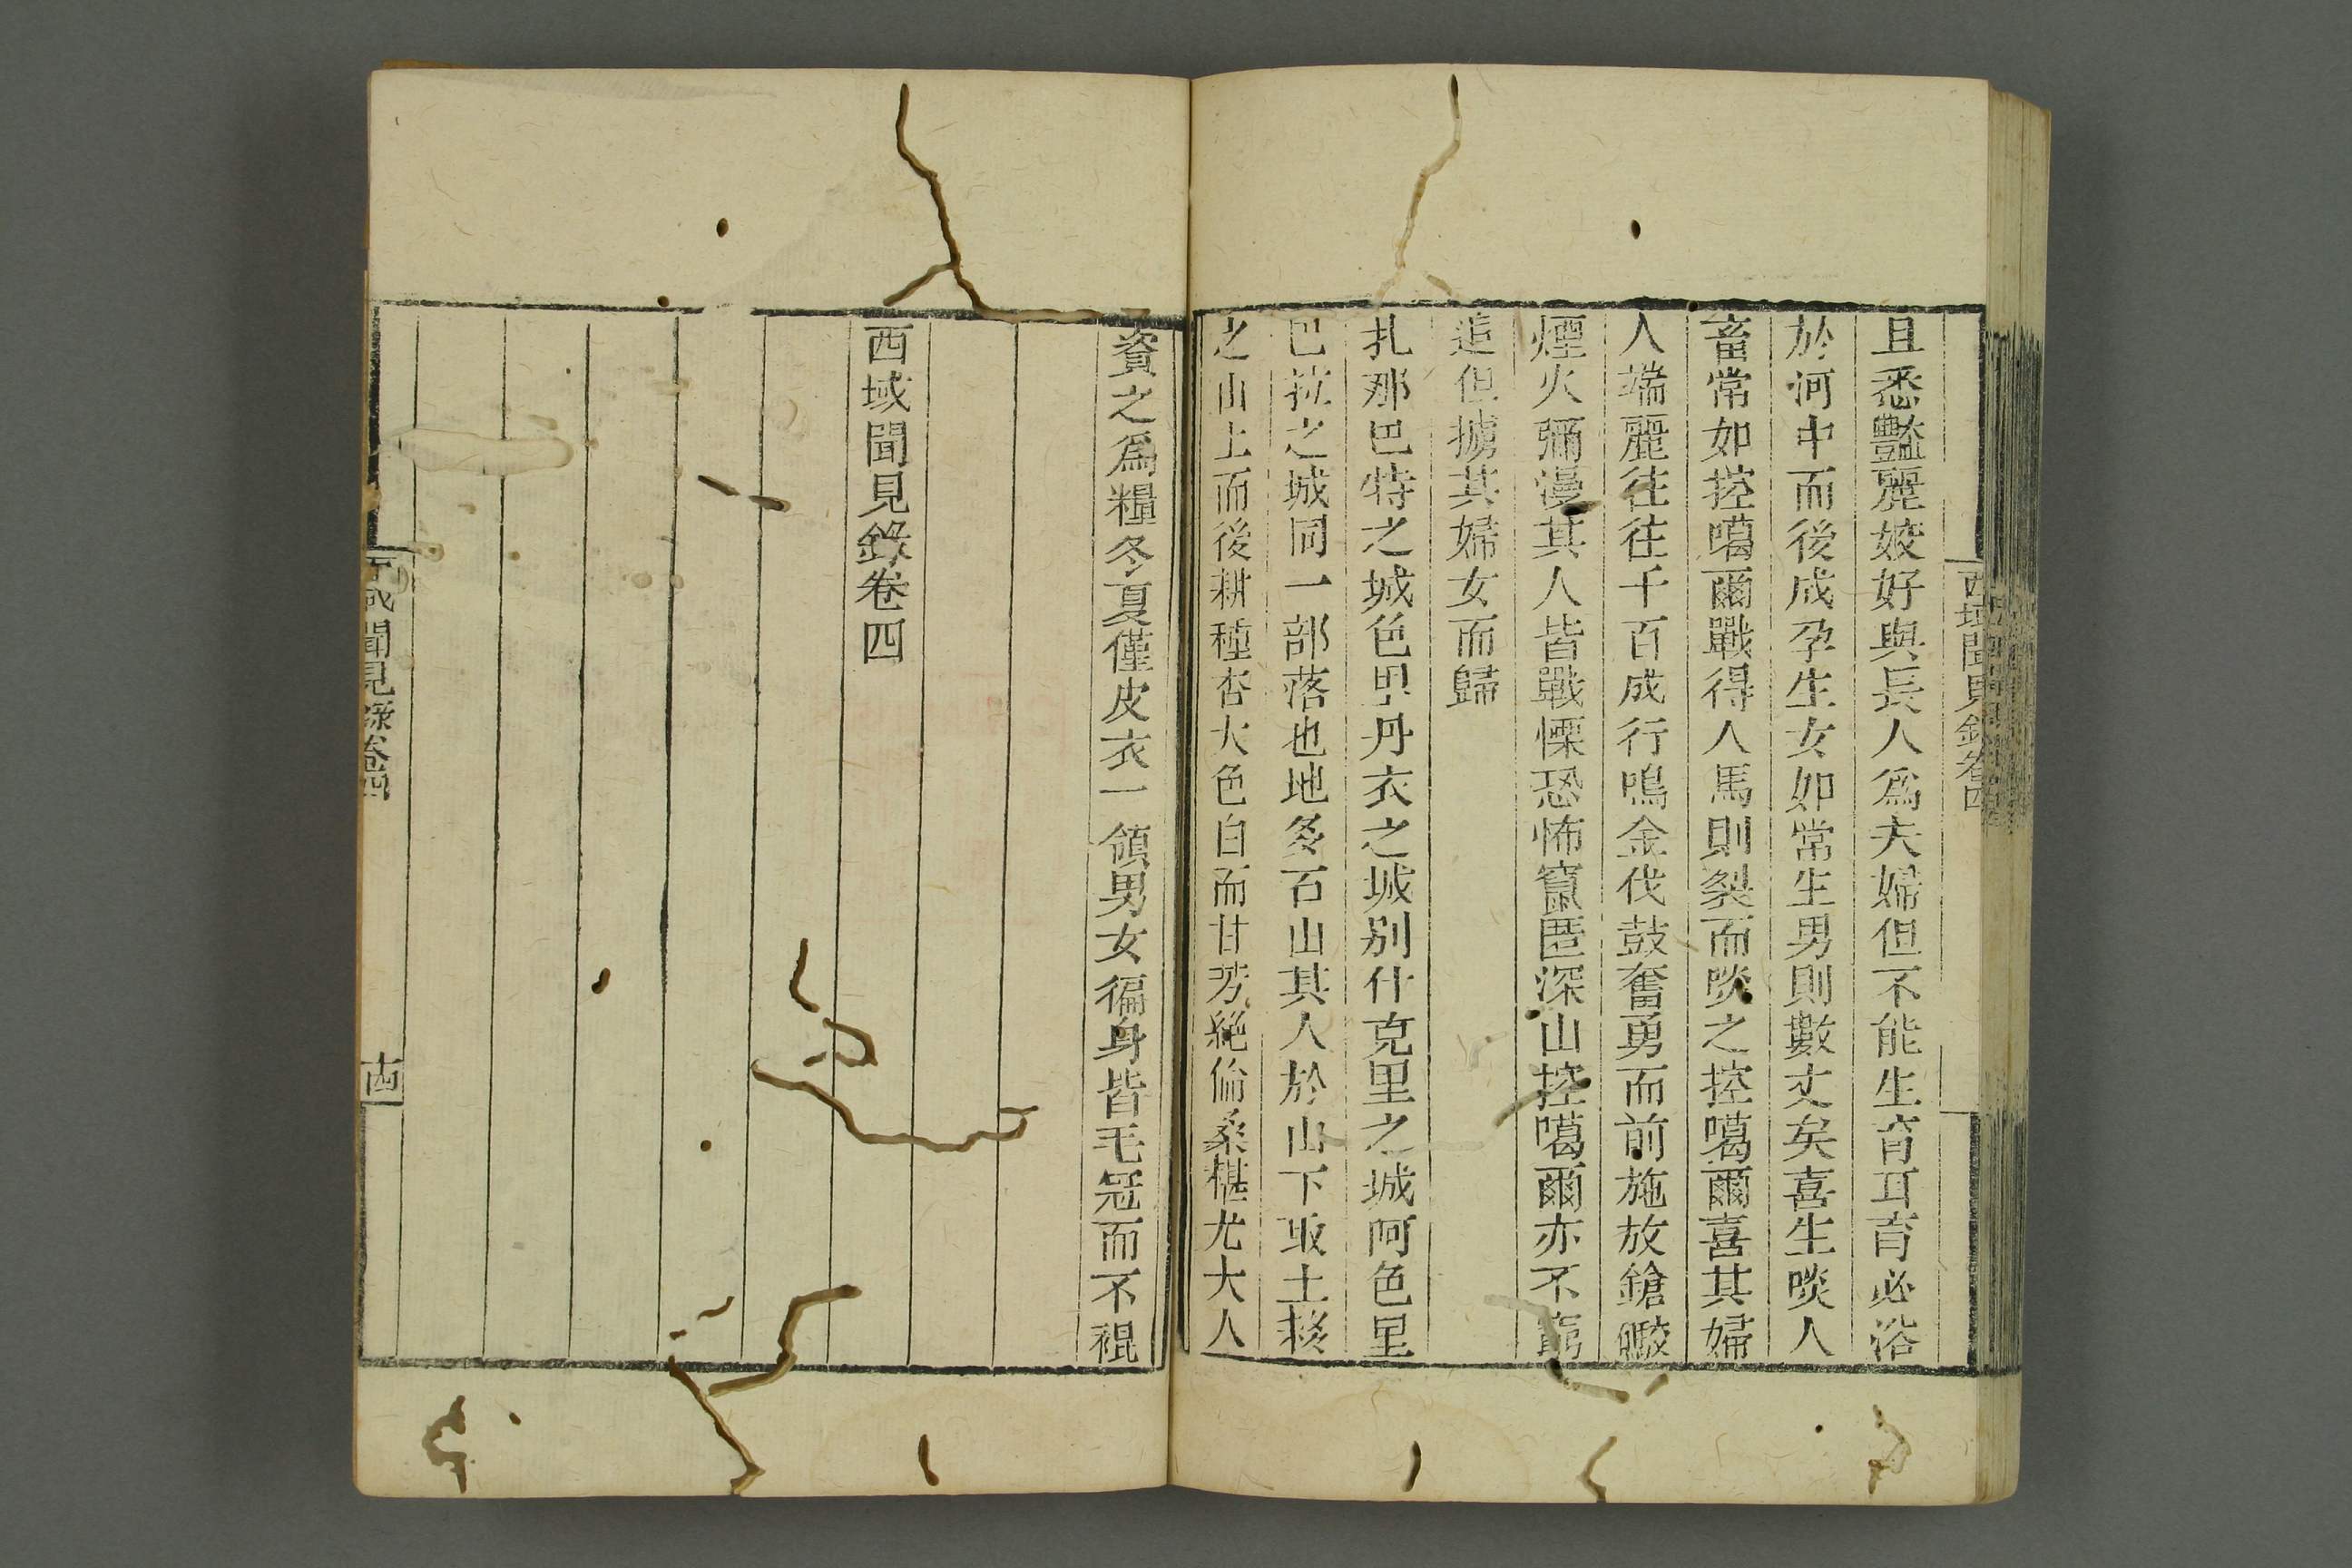 且悉豔麗姣好與長人爲夫婦但不能生育耳育必浴
於河中而後成孕生女如常生男則數丈矣喜生啖人
畜常如控噶爾戰得人馬則裂而啖之控噶爾喜其婦
人端麗往往千百成行鳴金伐鼓奮勇而前施放鎗礮
煙火彌漫其人皆戰慄恐怖竄匿深山控噶爾亦不窮
追但擄其婦女而歸
扎那巴特之城色里丹衣之城别什克里之城阿色里
巴拉之城同一部落也地多石山其人於山下取土移
之山上而後耕種杏大色白而甘芳絶倫桑椹尤大人
西域聞見錄卷四
資之爲糧冬夏僅皮衣一領男女徧身皆毛冠而不裩
西域聞見錄卷四
域聞見錄卷四
十四